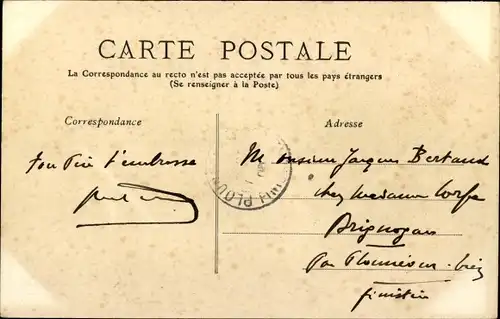 CARTE POSTALE
La Correspondance au recto n'est pas acceptée par tous les pays étrangers
(Se renseigner à la Poste)
Correspondance
Adresse
ton Père t'embrasse
Monsieur Jacques Bertaud
chez Madame
Brignogan
Par Plounéour-
Finistère